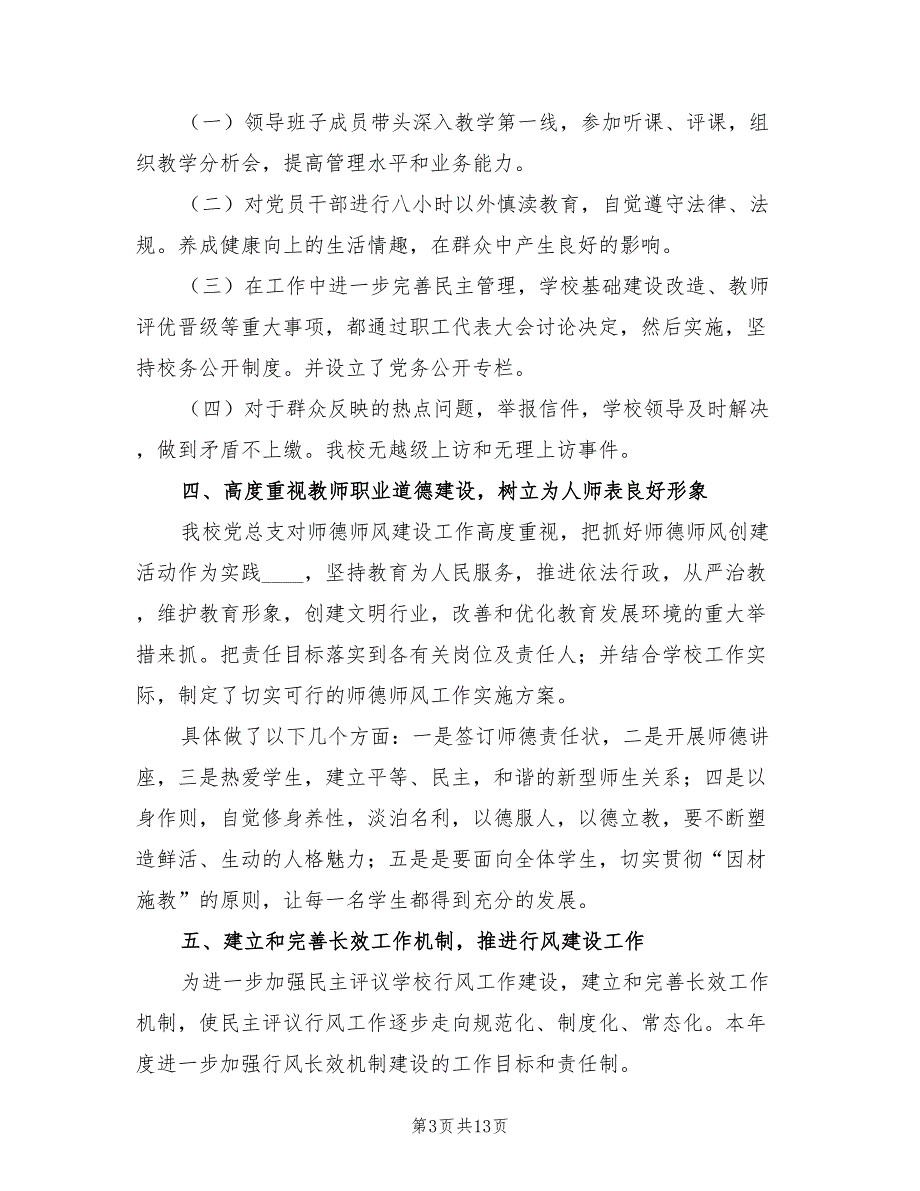 （一）领导班子成员带头深入教学第一线，参加听课、评课，组
织教学分析会，提高管理水平和业务能力。
（二）对党员干部进行八小时以外慎渎教育，自觉遵守法律、法
规。养成健康向上的生活情趣，在群众中产生良好的影响。
（三）在工作中进一步完善民主管理，学校基础建设改造、教师
评优晋级等重大事项，都通过职工代表大会讨论决定，然后实施，坚
持校务公开制度。并设立了党务公开专栏。
（四）对于群众反映的热点问题，举报信件，学校领导及时解决
，做到矛盾不上缴。我校无越级上访和无理上访事件。
四、高度重视教师职业道德建设，树立为人师表良好形象
我校党总支对师德师风建设工作高度重视，把抓好师德师风创建
活动作为实践____，坚持教育为人民服务，推进依法行政，从严治教
，维护教育形象，创建文明行业，改善和优化教育发展环境的重大举
措来抓。把责任目标落实到各有关岗位及责任人；并结合学校工作实
际，制定了切实可行的师德师风工作实施方案。
具体做了以下几个方面：一是签订师德责任状，二是开展师德讲
座，三是热爱学生，建立平等、民主，和谐的新型师生关系；四是以
身作则，自觉修身养性，淡泊名利，以德服人，以德立教，要不断塑
造鲜活、生动的人格魅力；五是是要面向全体学生，切实贯彻“因材
施教”的原则，让每一名学生都得到充分的发展。
五、建立和完善长效工作机制，推进行风建设工作
为进一步加强民主评议学校行风工作建设，建立和完善长效工作
机制，使民主评议行风工作逐步走向规范化、制度化、常态化。本年
度进一步加强行风长效机制建设的工作目标和责任制。
第3页共13页